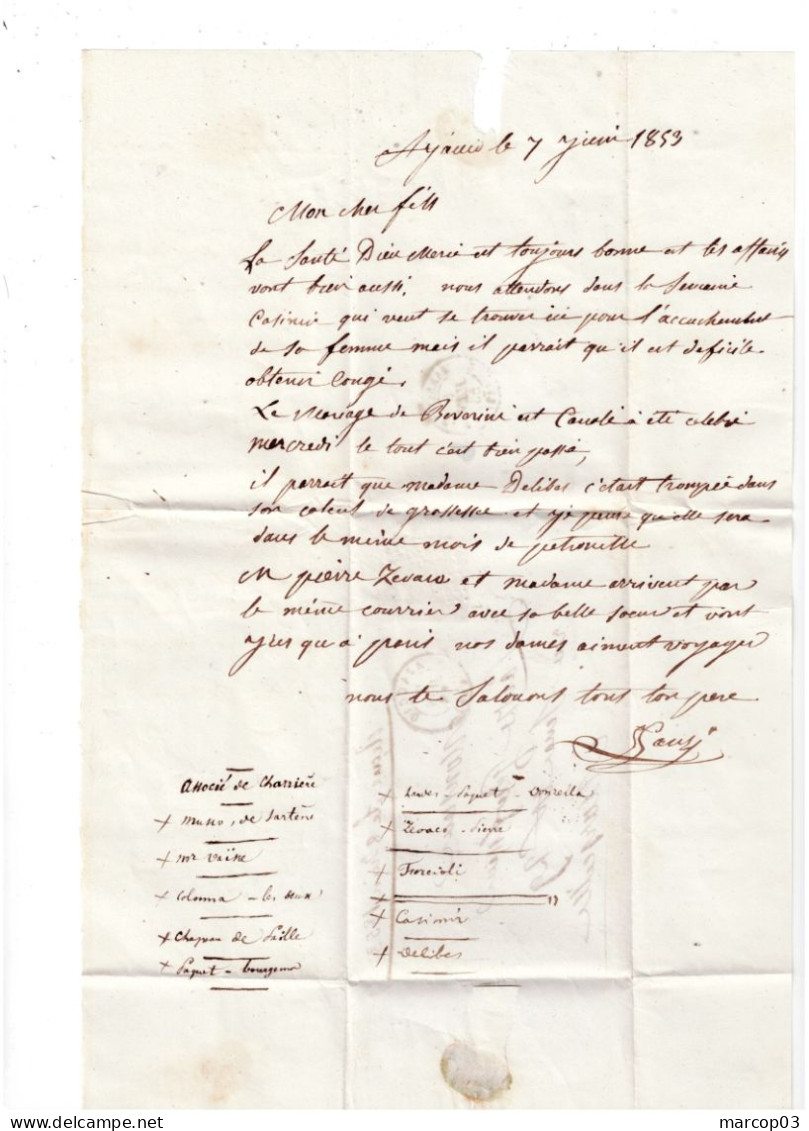 Ajaccio le 7 juin 1853
Mon cher fils
La santé Dieu Merci est toujours bonne et les affaires
vont bien aussi, nous attendons dans la semaine
Casimir qui veut se trouver ici pour l'accouchement
de sa femme mais il parrait qu'il est deficile
obtenir congé.
Le Mariage de et à été celebré
mercredi le tout c'est bien passé,
il parrait que madame Delibes c'etait trompée dans
son calcul de grossesse et je pense qu'elle sera
dans le même mois de petronille
M pierre Zevaco et madame arrivent par
le même courrier avec sa belle soeur et vont
jusqu'a paris nos dames aiment voyager
nous te Saluons tous ton pere
Associé de Charriere
+ Musso, de Sartène
+ mr
+ Colonna - les deux
+ Chapeau de Paille
+ Paquet -
+ - Paquet -
+ Zevaco - Pierre
+
+ "
+ Casimir
+ Delibes
MARCOP03